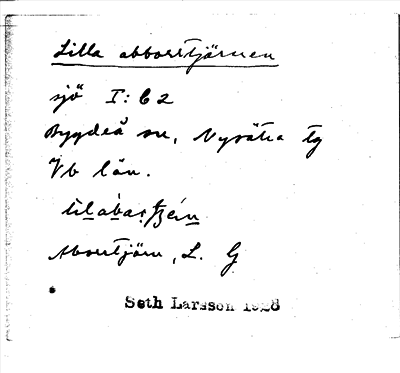 Lilla abborrtjärnen
sjö I: 62
Bygdeå sn, Nysätra tg
Vb län.
Aborrtjärn, L. G
Seth Larsson 1928